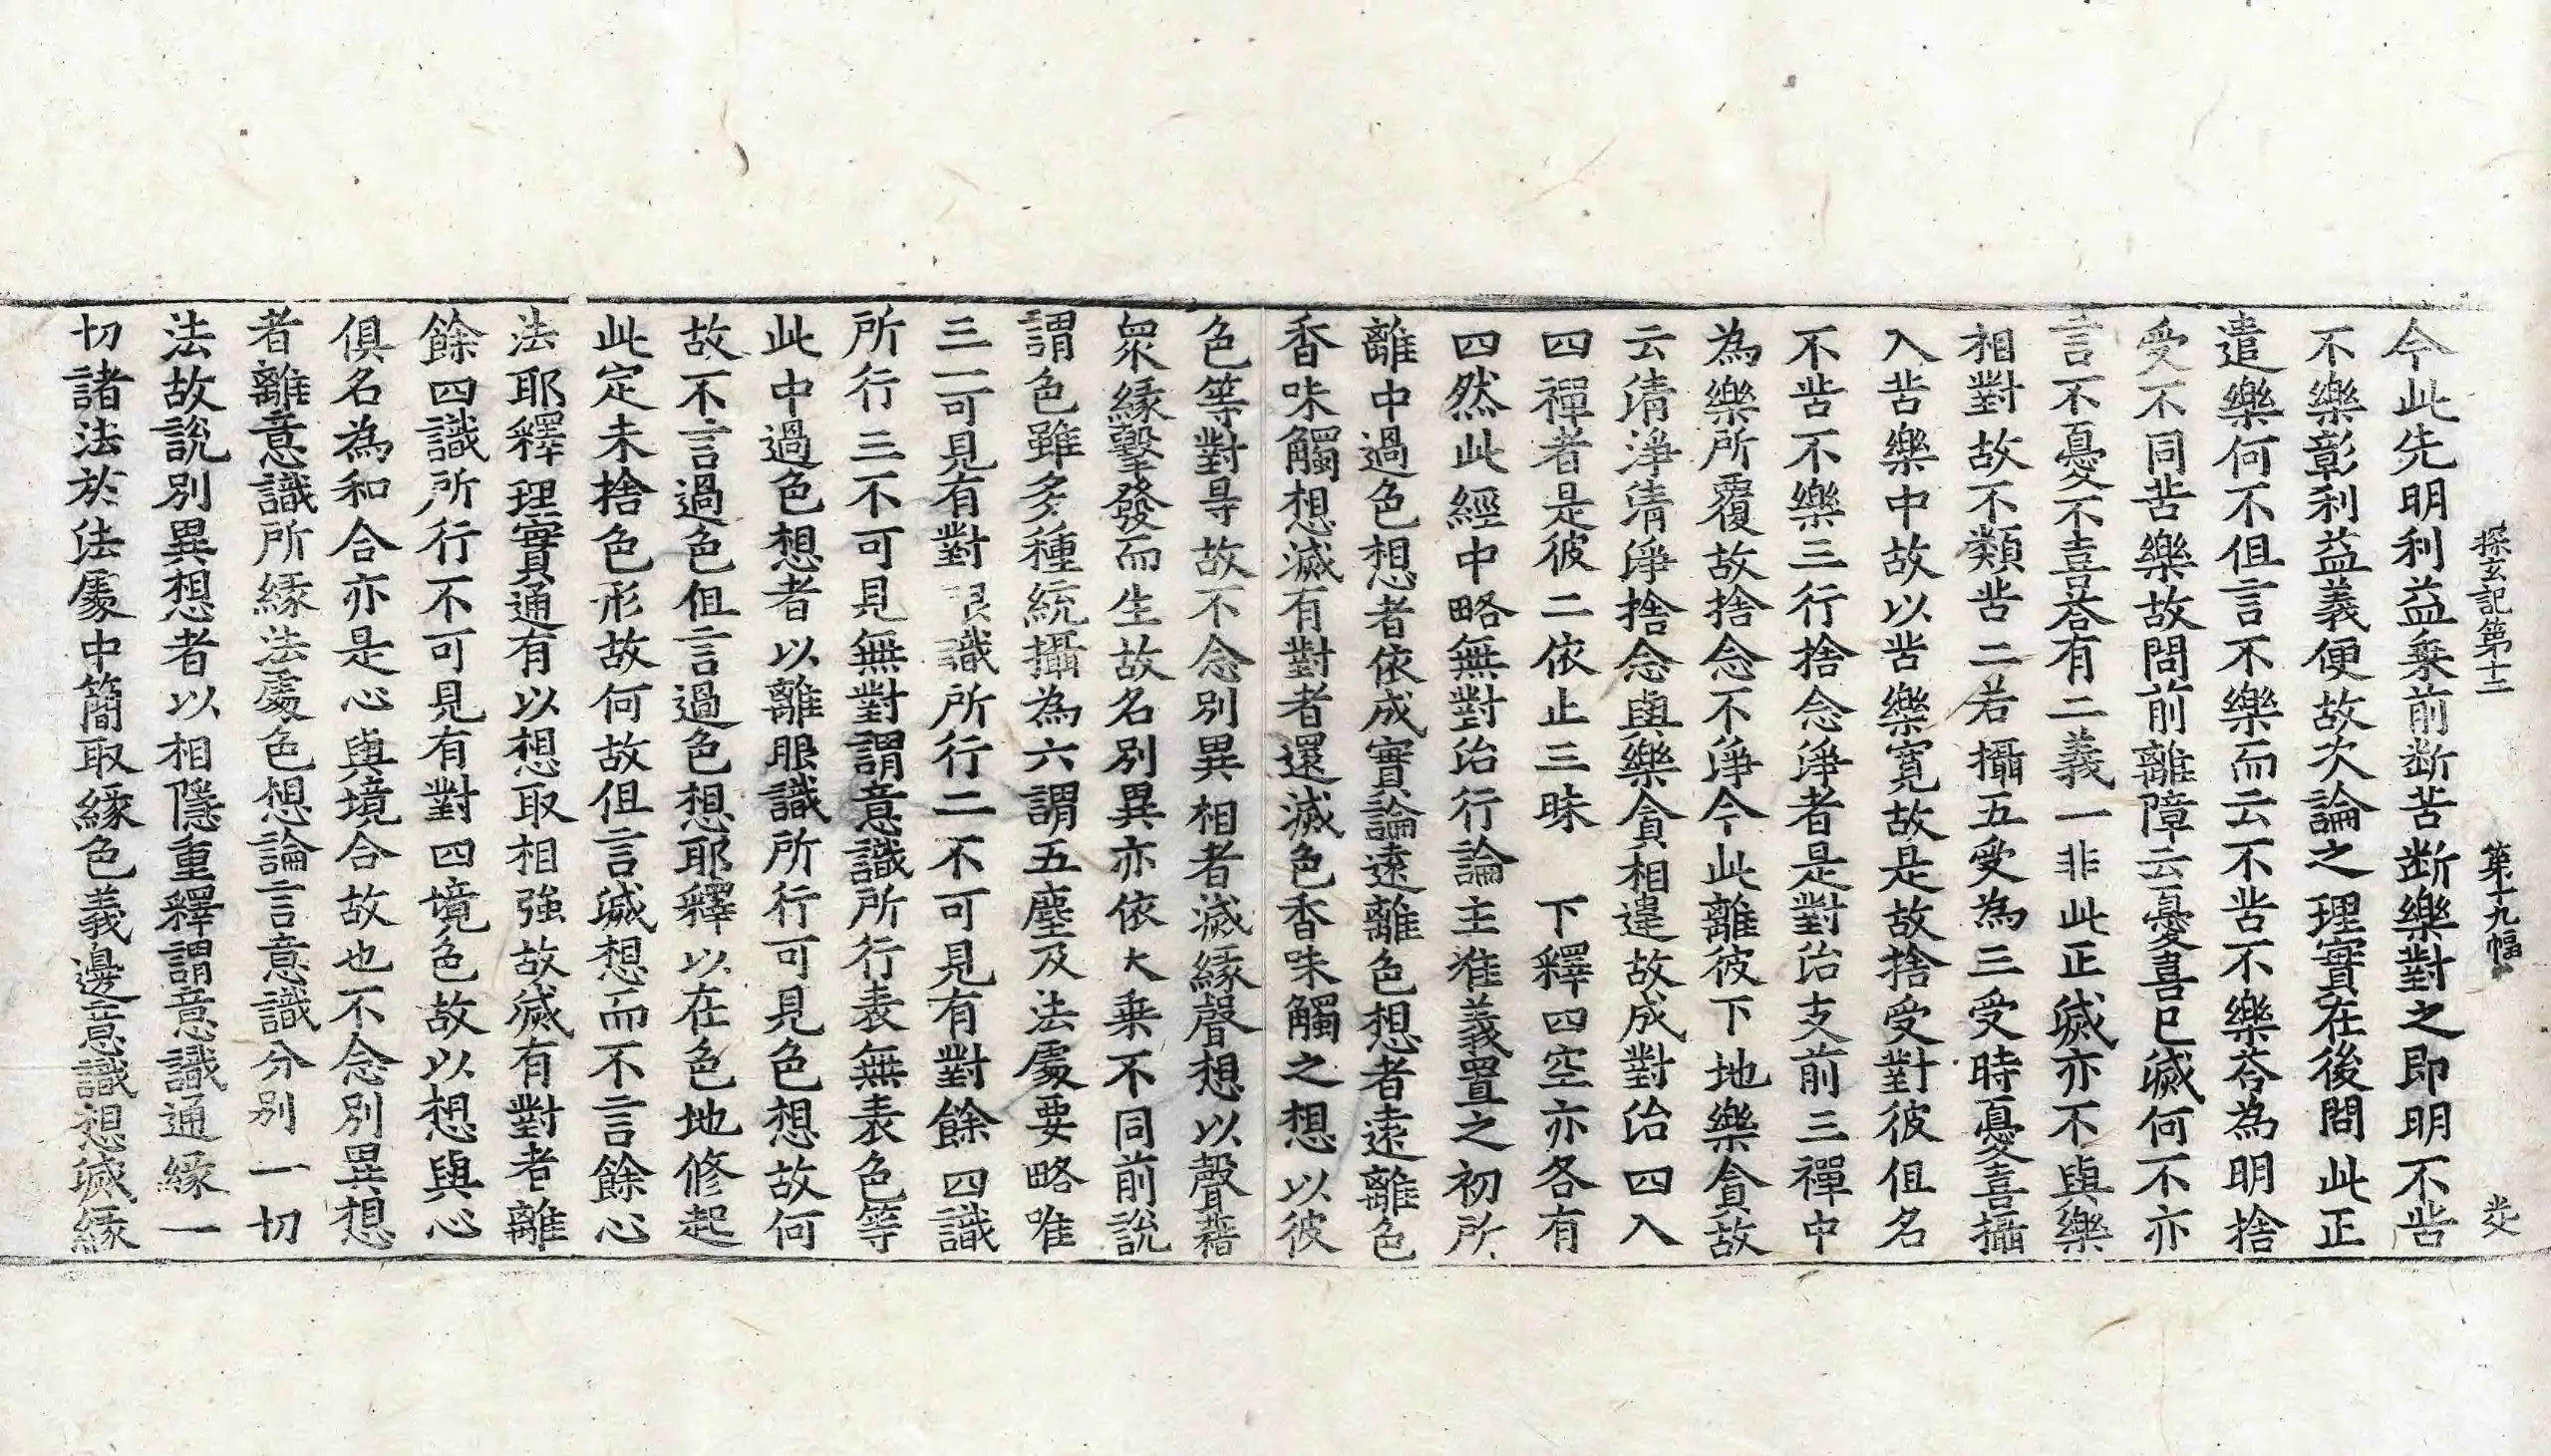 探玄記第十二　第十九幅　㳄
今此先明利益乗前断苦断樂對之即明不苦
不樂彰利益義便故次論之理實在後問此正
遣樂何不但言不樂而云不苦不樂荅為明捨
受不同苦樂故問前離障云憂喜已滅何不亦
言不憂不喜荅有二義一非此正滅亦不與樂
相對故不類苦二若攝五受為三受時憂喜攝
入苦樂中故以苦樂寬故是故捨受對彼但名
不苦不樂三行捨念淨者是對治支前三禪中
為樂所覆故捨念不淨今此離彼下地樂貪故
云清淨清淨捨念與樂貪相違故成對治四入
四禪者是彼二依止三昧　下釋四空亦各有
四然此經中略無對治行論主准義置之初所
離中過色想者依成實論遠離色想者遠離色
香味觸想滅有對者還滅色香味觸之想以彼
色等對㝵故不念別異相者滅緣聲想以聲藉
衆緣擊發而生故名別異亦依大乗不同前說
謂色雖多種統攝為六謂五塵及法處要略唯
三一可見有對眼識所行二不可見有對餘四識
所行三不可見無對謂意識所行表無表色等
此中過色想者以離眼識所行可見色想故何
故不言過色但言過色想耶釋以在色地修起
此定未捨色形故何故但言滅想而不言餘心
法耶釋理實通有以想取相強故滅有對者離
餘四識所行不可見有對四境色故以想與心
俱名為和合亦是心與境合故也不念別異想
者離意識所緣法處色想論言意識分別一切
法故説別異想者以相隱重釋謂意識通緣一
切諸法於法處中簡取緣色義邊意識想滅緣